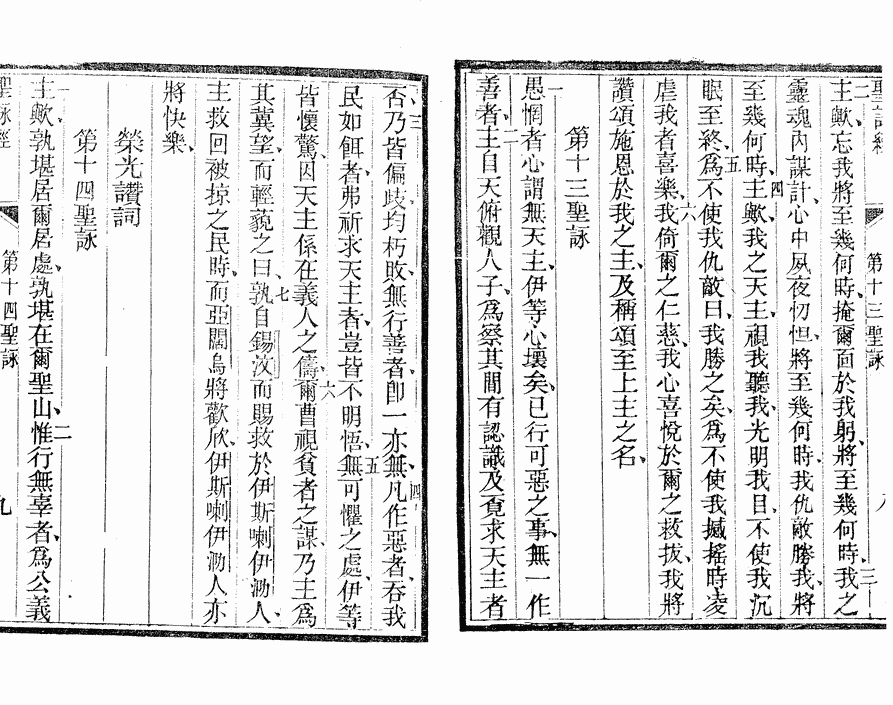 聖詠經
第十三聖詠
八
二
主歟、忘我將至幾何時、掩爾面於我躬、將至幾何時、三我之
靈魂內謀計、心中夙夜忉怛、將至幾何時、我仇敵勝我、將
至幾何時、四主歟、我之天主、視我聽我、光明我目、不使我沉
眠至終、五為不使我仇敵曰、我勝之矣、為不使我撼搖時、凌
虐我者喜樂、六我倚爾之仁慈、我心喜悅於爾之救拔、我將
讚頌施恩於我之主、及稱頌至上主之名、
第十三聖詠
一
愚惘者心謂無天主、伊等心壞矣、已行可惡之事、無一作
善者、二主自天俯觀人子、為察其間有認識及覔求天主者
三
否、乃皆偏歧、均朽敗、無行善者、卽一亦無、四凡作惡者、吞我
民如餌者、弗祈求天主者、豈皆不明悟、五無可懼之處、伊等
皆懷驚、因天主係在義人之儔、六爾曹視貧者之謀、乃主為
其冀望、而輕藐之曰、七孰自錫汶而賜救於伊斯喇伊泐人、
主救回被掠之民時、而亞闊烏將歡欣、伊斯喇伊泐人亦
將快樂、
榮光讚詞
第十四聖詠
一
主歟、孰堪居爾居處、孰堪在爾聖山、二惟行無辜者、為公義
聖詠經
第十四聖詠
九